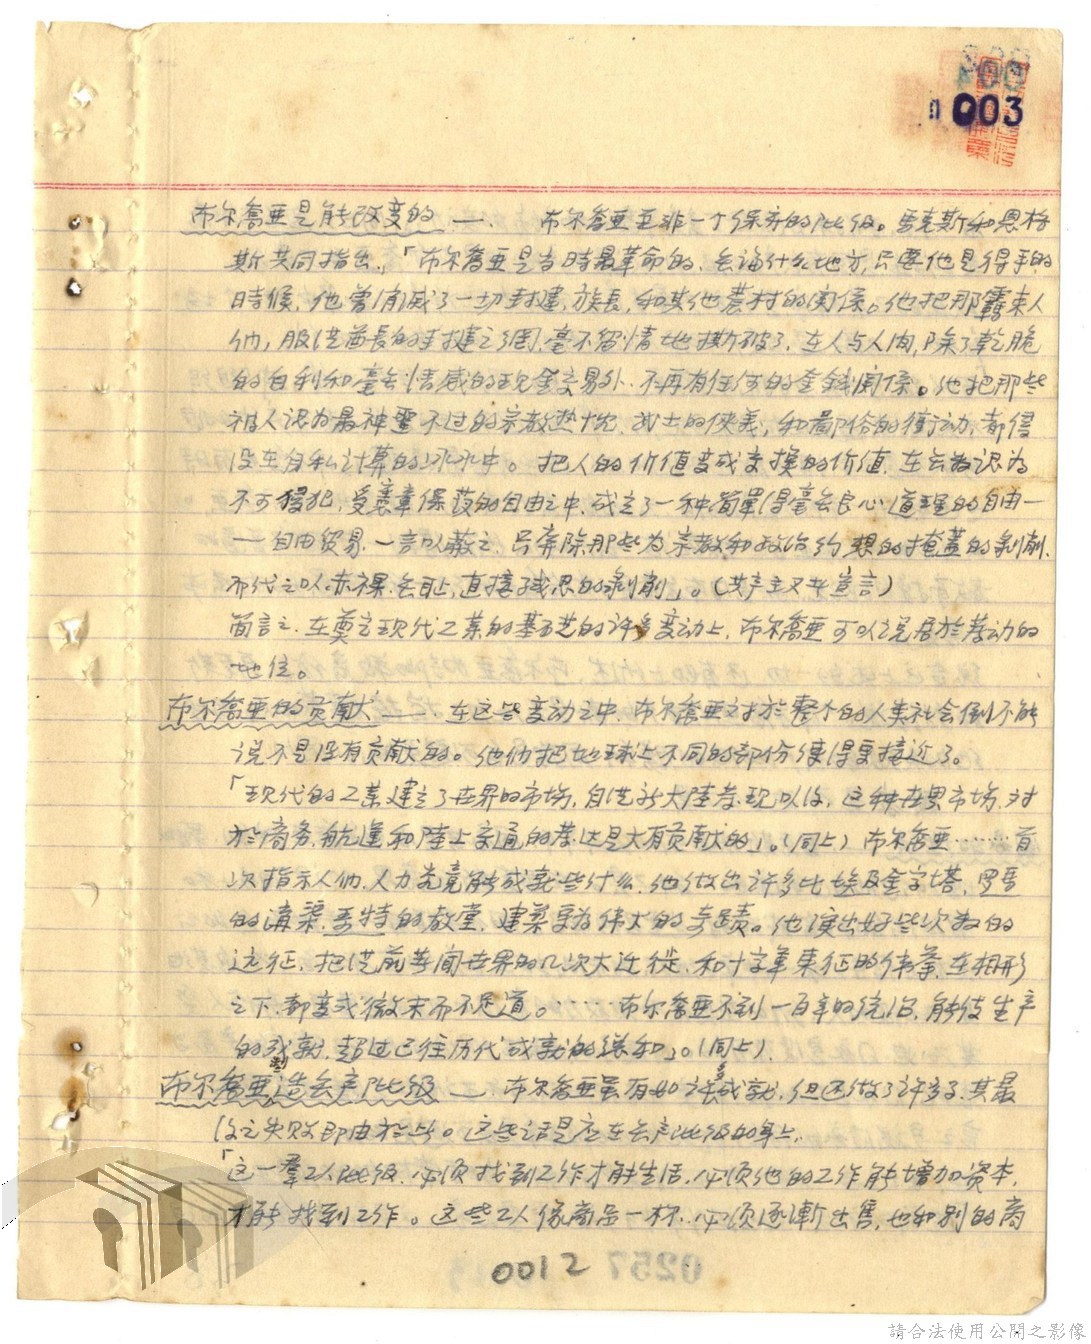 003
布尔喬亜是能改変的 —— 布尔喬亜並非一个保存的阶级。馬克斯和恩格
斯共同指出,「布尔喬亜是当時最革命的.無論什么地方,只要他是得手的
時候,他曾消滅了一切封建,族長,和其他農村的関係。他把那羈束人
们,服从酋長的封建之網.毫不留情地撕破了.在人与人间,除了乾脆
的自利和毫無情感的现金交易外.不再有任何的金錢関係。他把那些
被人认为最神聖不过的宗教热忱.武士的俠義,和鄙俗的衝动,都侵
没在自私计算的冰水中。把人的价值変成交換的价值.在無数认为
不可侵犯,受憲章保障的自由之中.成立了一种简單得毫無良心道理的自由—
—自由贸易.一言以蔽之.只弃除那些为宗教和政治幻想的掩蓋的剥削.
而代之以赤裸.無耻,直接了的剥削」。(共产主义共宣言)
简言之.在奠定现代工業的基础的许多変动上,布尔喬亜可以说居於劳动的
地位。
布尔喬亜的贡献——.在这些変动之中.布尔喬亜对於整个的人类社会倒不能
说不是没有贡献的。他们把地球上不同的部份使得更接近了。
「现代的工業建立了世界的市场,自从新大陸发现以後,这种世界市场.对
於商务.航運和陸上交通的发达是大有贡献的」。(同上)布尔喬亜……首
次指示人们.人力究竟能成就些什么.他做出许多比埃及金字塔,罗馬
的溝渠.哥特的教堂.建築更为伟大的奇蹟。他演出好些次数的
远征.把从前等闻世界的几次大迁徙.和十字軍東征的伟举.在相形
之下.都変成微末而不足道。……布尔喬亜不到一百年的统治.能使生产
的成就.超过已往历代成就的總和」。(同上).
布尔喬亜創造無产阶级—— 布尔喬亜虽有如许多成就.但还做了许多.其最
後之失败即由於此。这些话是应在無产阶级的身上.
「这一羣工人阶级.必须找到工作才能生活.必须他的工作能增加資本.
才能找到工作。这些工人像商品一样.必须逐漸出售,也和别的商
0012
0257
請合法使用公開之影像